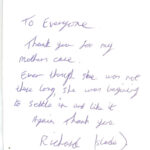 To Everyone
Thank you for my
mothers care.
Even though she was not
there long, she was beginning
to settle in and like it
Again Thank you
Richard